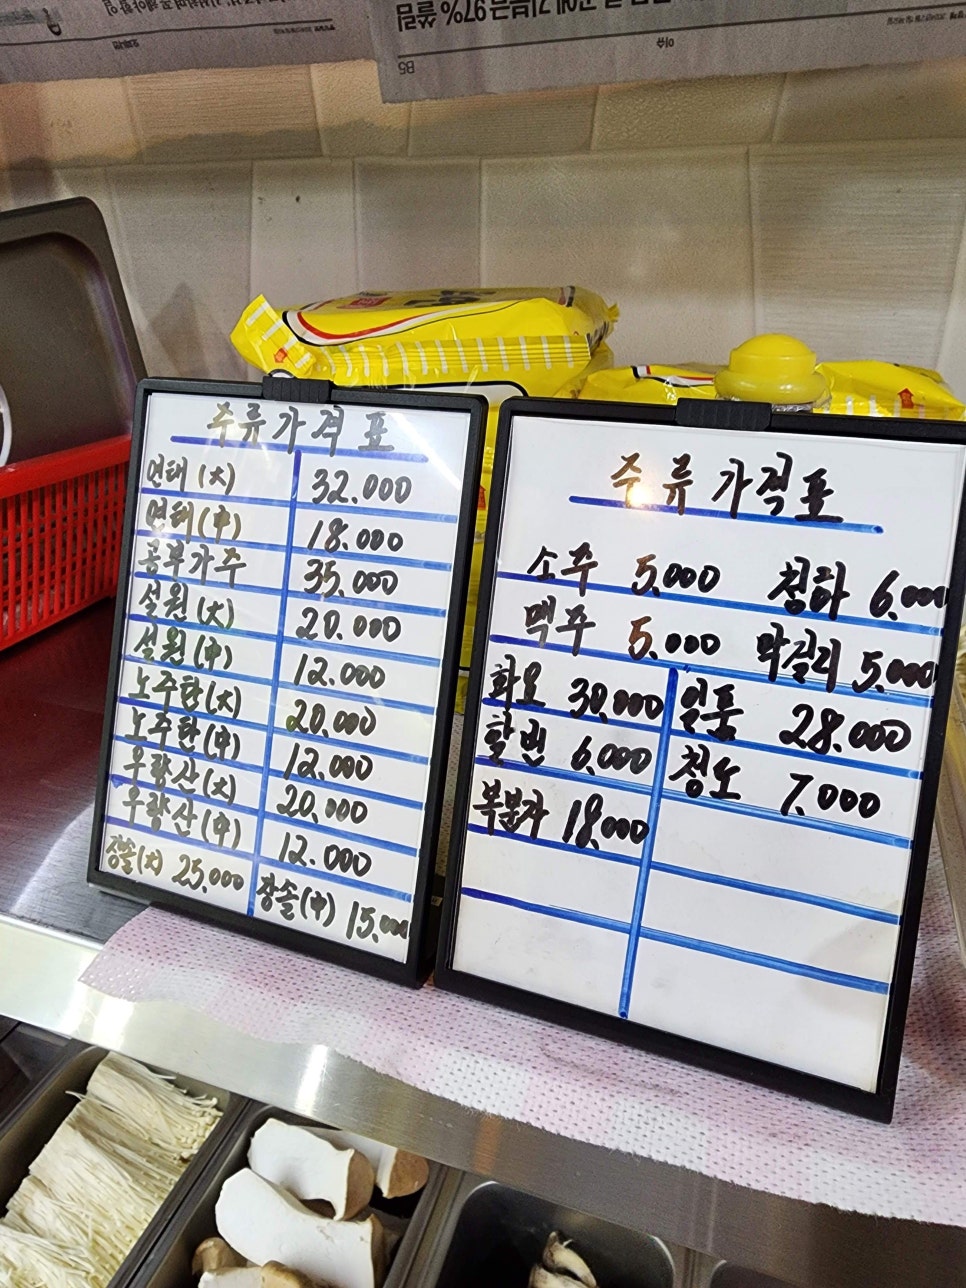 기부금 97% 쏠림
이슈
B5
주류가격표
연태(大) 32.000
연태(中) 18.000
공부가주 35.000
설원(大) 20.000
설원(中) 12.000
노주한(大) 20.000
노주한(中) 12.000
우량산(大) 20.000
우량산(中) 12.000
장솔(大) 25.000 장솔(中) 15.000
주류가격표
소주 5.000 청하 6.000
맥주 5.000 막걸리 5.000
화요 30.000 일품 28.000
할빈 6.000 칭도 7.000
복분자 18.000